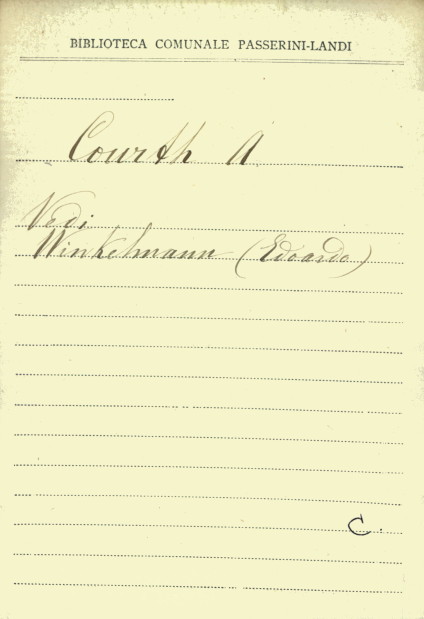 BIBLIOTECA COMUNALE PASSERINI-LANDI
Courth A
Vedi
Winkelmann (Edoardo)
C.